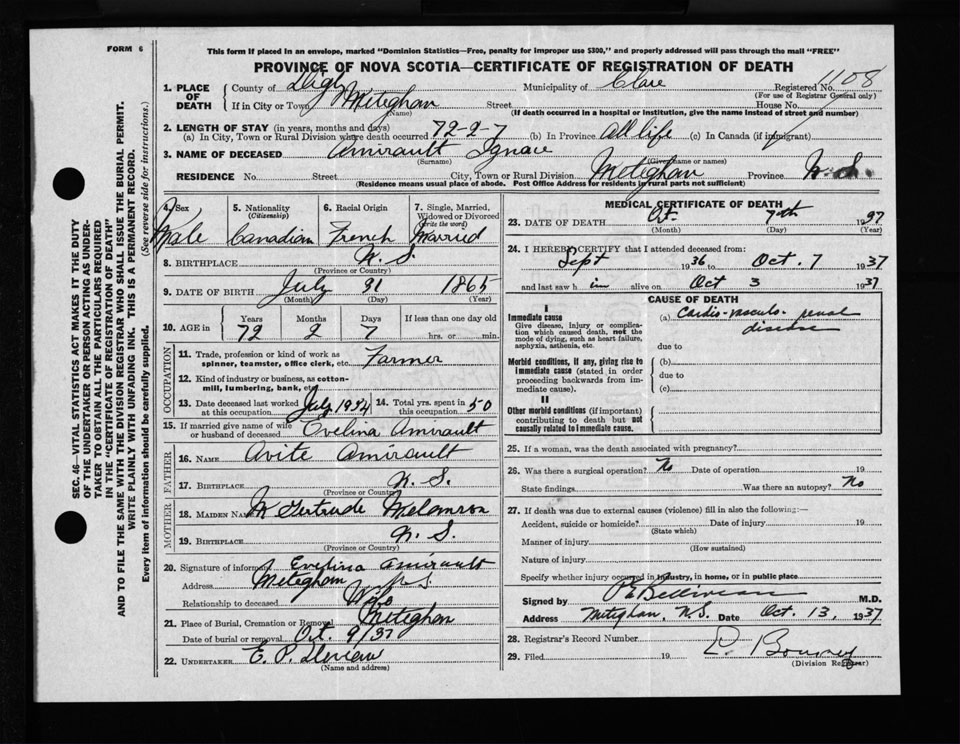 FORM 6
This form if placed in an envelope, marked "Dominion Statistics—Free, penalty for improper use $300," and properly addressed will pass through the mail "FREE"
PROVINCE OF NOVA SCOTIA—CERTIFICATE OF REGISTRATION OF DEATH
1. PLACE OF DEATH County of Digby Municipality of Clare Registered No. 1108
(For use of Registrar General only)
If in City or Town Meteghan Street House No.
(Name)
(If death occurred in a hospital or institution, give the name instead of street and number)
2. LENGTH OF STAY (in years, months and days)
(a) In City, Town or Rural Division where death occurred 72-2-7 (b) In Province all life (c) In Canada (if immigrant)
3. NAME OF DECEASED Amirault Ignace
(Surname) (Given name or names)
RESIDENCE No. Street City, Town or Rural Division Meteghan Province N.S.
(Residence means usual place of abode. Post Office Address for residents in rural parts not sufficient)
4. Sex Male
5. Nationality (Citizenship) Canadian
6. Racial Origin French
7. Single, Married, Widowed or Divorced (write the word) Married
8. BIRTHPLACE N.S.
(Province or Country)
9. DATE OF BIRTH July 31 1865
(Month) (Day) (Year)
10. AGE in Years Months Days If less than one day
72 2 7 hrs. or min.
OCCUPATION
11. Trade, profession or kind of work as spinner, teamster, office clerk, etc. Farmer
12. Kind of industry or business, as cotton-mill, lumbering, bank, etc.
13. Date deceased last worked at this occupation July 1934 14. Total yrs. spent in this occupation 50
15. If married give name of wife or husband of deceased Evelina Amirault
FATHER
16. NAME Avite Amirault
17. BIRTHPLACE N.S.
(Province or Country)
MOTHER
18. MAIDEN NAME M Gertrude Melanson
19. BIRTHPLACE N.S.
(Province or Country)
20. Signature of informant Evelina Amirault
Address Meteghan N S
Relationship to deceased Wife
21. Place of Burial, Cremation or Removal Meteghan
Date of burial or removal Oct. 9/37
22. UNDERTAKER E. P.
(Name and address)
MEDICAL CERTIFICATE OF DEATH
23. DATE OF DEATH Oct. 7th 1937
(Month) (Day) (Year)
24. I HEREBY CERTIFY that I attended deceased from:
Sept 1936 to Oct. 7 1937
and last saw him alive on Oct 3 1937
CAUSE OF DEATH
I
Immediate cause (a) Cardio-vasculo-renal disease
Give disease, injury or complication which caused death, not the mode of dying, such as heart failure, asphyxia, asthenia, etc.
due to
Morbid conditions, if any, giving rise to immediate cause (stated in order proceeding backwards from immediate cause).
(b)
due to
(c)
II
Other morbid conditions (if important) contributing to death but not causally related to immediate cause.
25. If a woman, was the death associated with pregnancy?
26. Was there a surgical operation? No Date of operation 19
State findings Was there an autopsy? No
27. If death was due to external causes (violence) fill in also the following:—
Accident, suicide or homicide? Date of injury 19
(State which)
Manner of injury
(How sustained)
Nature of injury
Specify whether injury occurred in industry, in home, or in public place
Signed by P E Belliveau M.D.
Address Meteghan, N.S. Date Oct. 13, 1937
28. Registrar's Record Number
29. Filed 19
(Division Registrar)
SEC. 46—VITAL STATISTICS ACT MAKES IT THE DUTY
OF THE UNDERTAKER OR PERSON ACTING AS UNDER-
TAKER TO OBTAIN ALL THE PARTICULARS REQUIRED
IN THE "CERTIFICATE OF REGISTRATION OF DEATH"
AND TO FILE THE SAME WITH THE DIVISION REGISTRAR WHO SHALL ISSUE THE BURIAL PERMIT.
WRITE PLAINLY WITH UNFADING INK. THIS IS A PERMANENT RECORD.
Every item of information should be carefully supplied. (See reverse side for instructions.)